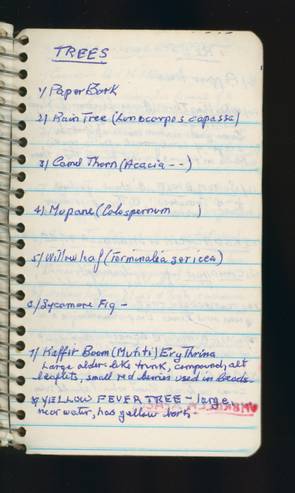 TREES
1) Paper Bark
2) Rain Tree (Lonocarpos capassa)
3) Camel Thorn (Acacia - -)
4) Mopane (Colospermum )
5) Willow leaf (Terminalia sericea)
6) Sycamore Fig -
7) Kaffir Boom (Mutiti) Erythrina
Large alder-like trunk, compound, alt
leaflets, small red berries used in beads-
8) YELLOW FEVER TREE - large,
near water, has yellow bark -